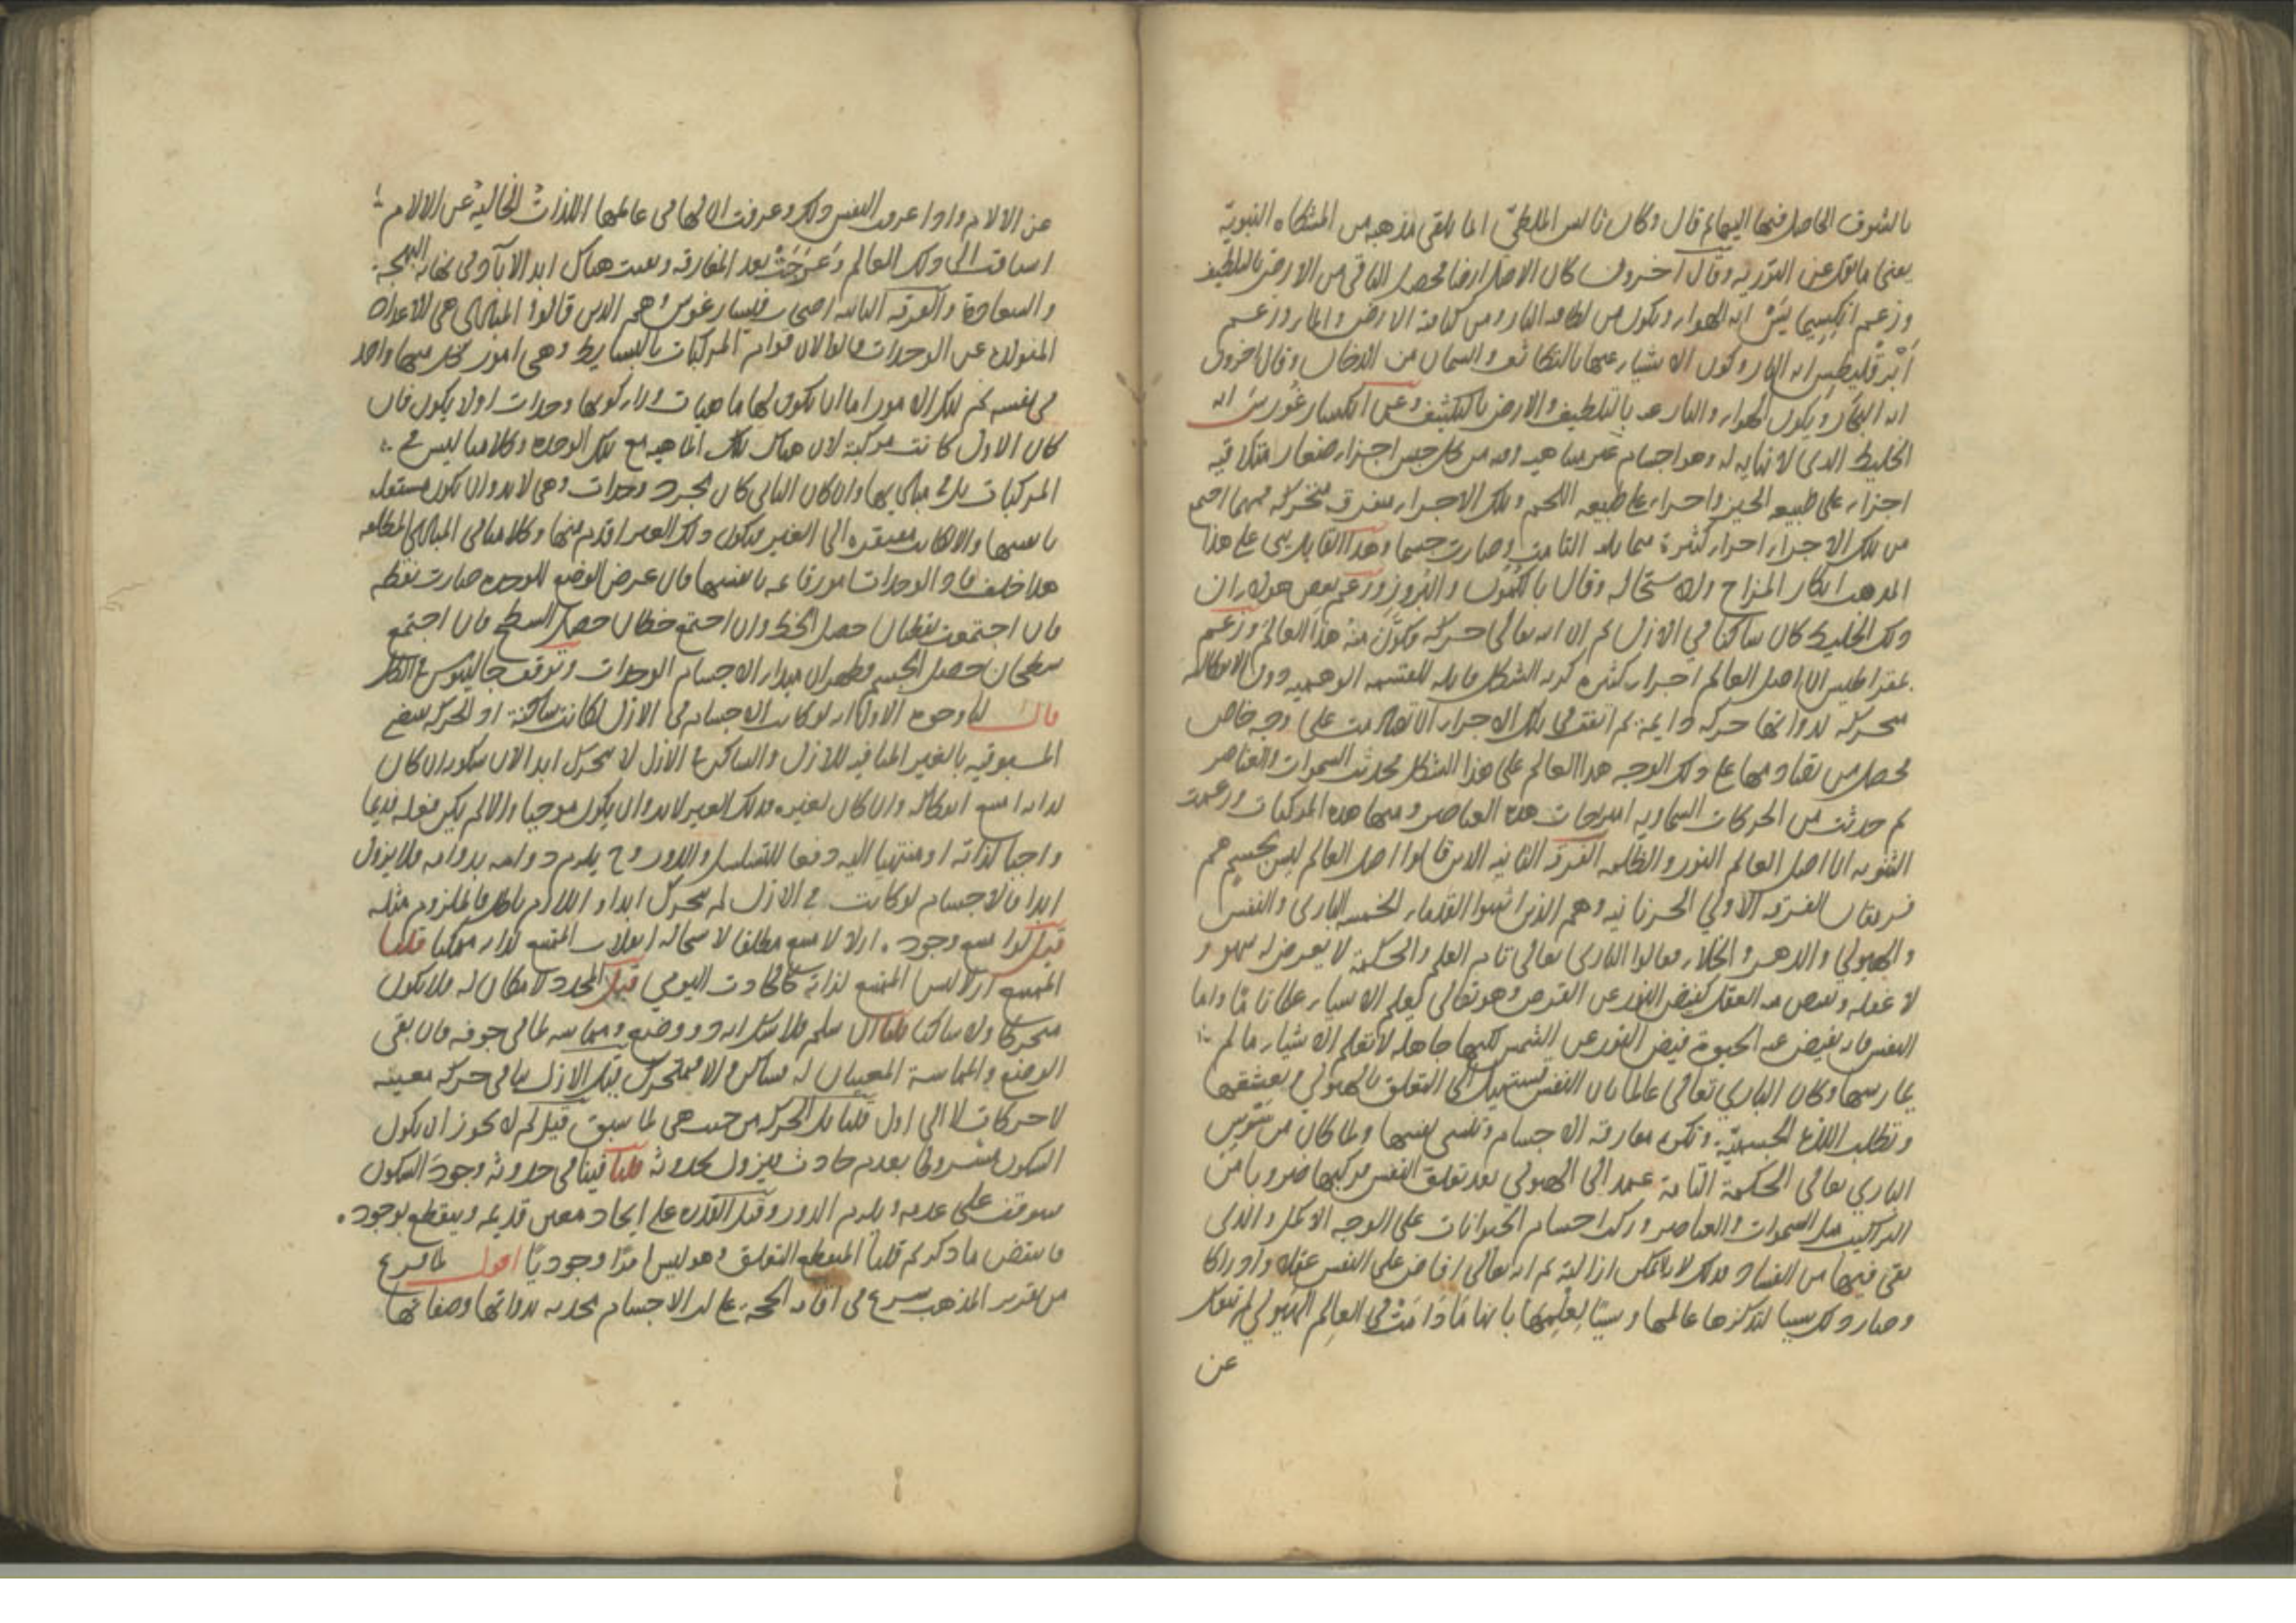 بالشوق الحاصل فيها اليها ثم قال وكان ثاليس الملطي انما تلقى مذهبه من المشكاه النبوية
يعني ما نقل عن التورية وقال اخرون كان الاصل ارضا فحصل الباقي من الارض بالتلطيف
وزعم انكسيمايس انه الهواء وتكون من لطافته النار ومن كثافته الارض والماء وزعم
ابرقليطس انه النار وكون الاشياء عنها بالتكاثف والسماء من الدخان وقال اخرون
انه البخار ويكون الهواء والنار عنه بالتلطيف والارض بالتكثيف وعن انكساغورس انه
الخليط الذي لا نهاية له وهو اجسام غير متناهية وفيه من كل جنس اجزاء صغار متلاقية
اجزاء على طبيعة الخبز واجزاء على طبيعة اللحم وتلك الاجزاء متفرقة متحركة فمهما اجتمع
من تلك الاجزاء اجزاء كثيرة متماثلة التأمت وصارت جسما وهذا القايل بنى على هذا
المذهب انكار المزاج والاستحالة وقال بالكمون والبروز وزعم بعض هولاء ان
ذلك الخليط كان ساكنا في الازل ثم ان الله تعالى حركه فكون منه هذا العالم وزعم
ذيمقراطيس ان اصل العالم اجزاء كثيرة كرية الشكل قابلة للقسمة الوهمية دون الانفكاكية
متحركة لذواتها حركة دايمة ثم اتفق في تلك الاجزاء ان تصادمت على وجه خاص
فحصل من تصادمها على ذلك الوجه هذا العالم على هذا الشكل فحدثت السموات والعناصر
ثم حدثت من الحركات السماوية امتزاجات هذه العناصر ومنها هذه المركبات وزعمت
الثنوية ان اصل العالم النور والظلمة الفرقة الثانية الذين قالوا اصل العالم ليس بجسم هم
فريقان الفرقة الاولى الحرنانية وهم الذين اثبتوا القدماء الخمسة الباري والنفس
والهيولى والدهر والخلاء فقالوا الباري تعالى تام العلم والحكمة لا يعرض له سهو و
لا غفلة ويفيض عنه العقل كفيض النور عن القرص وهو تعالى يعلم الاشياء علما تاما واما
النفس فانه يفيض عنه الحيوة فيض النور عن الشمس لكنها جاهلة لا تعلم الاشياء ما لم
يمارسها وكان الباري تعالى عالما بان النفس تستميل الى التعلق بالهيولى وتعشقها
وتطلب اللذة الجسمية وتكره مفارقة الاجسام وتنسى نفسها ولما كان من سوس
الباري تعالى الحكمة التامة عمد الى الهيولى بعد تعلق النفس فركبها ضروبا من
التراكيب مثل السموات والعناصر وركب اجسام الحيوانات على الوجه الاكمل والذي
بقي فيها من الفساد فذلك لا يمكن ازالته ثم انه تعالى افاض على النفس عقلا وادراكا
وصار ذلك سببا لتذكرها عالمها وسببا لعلمها بانها ما دامت في العالم الهيولي لم تنفك
عن
عن الالام واذا عرفت النفس ذلك وعرفت ان لها في عالمها اللذات الخالية عن الالام
اشتاقت الى ذلك العالم وعرجت بعد المفارقة وبقيت هناك ابد الاباد في نهاية البهجة
والسعادة والفرقة الثانية اصحاب فيثاغورس وهم الذين قالوا المبادي هي الاعداد
المتولدة عن الوحدات قالوا لان قوام المركبات بالبسايط وهي امور كل منها واحد
في نفسه ثم تلك الامور اما ان تكون لها ماهيات وراء كونها وحدات او لا يكون فان
كان الاول كانت مركبة لان هناك تلك الماهية مع تلك الوحدة وكلامنا ليس في
المركبات بل في مباديها وان كان الثاني كان مجرد وحدات وهي لابد وان تكون مستقلة
بانفسها والا لكانت مفتقرة الى الغير فيكون ذلك الغير اقدم منها وكلامنا في المبادي المطلقة
هذا خلف فاذ الوحدات امور قائمة بانفسها فان عرض الوضع للوحدة صارت نقطة
فان اجتمعت نقطتان حصل الخط وان اجتمع خطان حصل السطح فان اجتمع
سطحان حصل الجسم فظهر ان مبدأ الاجسام الوحدات وتوقف جالينوس في الكل
قال لنا وجوه الاول انه لو كانت الاجسام في الازل لكانت ساكنة اذ الحركة تقتضي
المسبوقية بالغير المنافية للازل والساكن في الازل لا يتحرك ابدا لان سكونه ان كان
لذاته امتنع انفكاكه وان كان لغيره فذلك الغير لابد وان يكون موجبا والا لم يكن فعله قديما
واجبا لذاته او منتهيا اليه دفعا للتسلسل والدور وح يلزم دوامه بدوامه فلا يزول
ابدا فالاجسام لو كانت في الازل لم تتحرك ابدا واللازم باطل فالملزوم مثله
قيل لو امتنع وجوده ازلا لامتنع مطلقا لاستحالة انقلاب الممتنع لذاته ممكنا قلنا
الممتنع ازلا ليس الممتنع لذاته كالحادث اليومي قيل المحدد لا مكان له فلا يكون
متحركا ولا ساكنا قلنا ان سلم فلا شك انه ذو وضع ومماسة لما في جوفه فان بقي
الوضع والمماسة المعينان له فساكن والا فمتحرك قيل الازل ينافي حركة معينة
لا حركات لا الى اول قلنا بل الحركة من حيث هي لما سبق قيل لم لا يجوز ان يكون
السكون مشروطا بعدم حادث فيزول بحدوثه قلنا فينافي حدوثه وجود السكون
فيتوقف على عدمه ويلزم الدور وقيل القدرة على ايجاد معين قديمة وينقطع بوجوده
فانتقض ما ذكرتم قلنا المنقطع التعلق وهو ليس امرا وجوديا اقول لما فرغ
من تقرير المذهب شرع في اقامة الحجة على ان الاجسام محدثة بذواتها وصفاتها